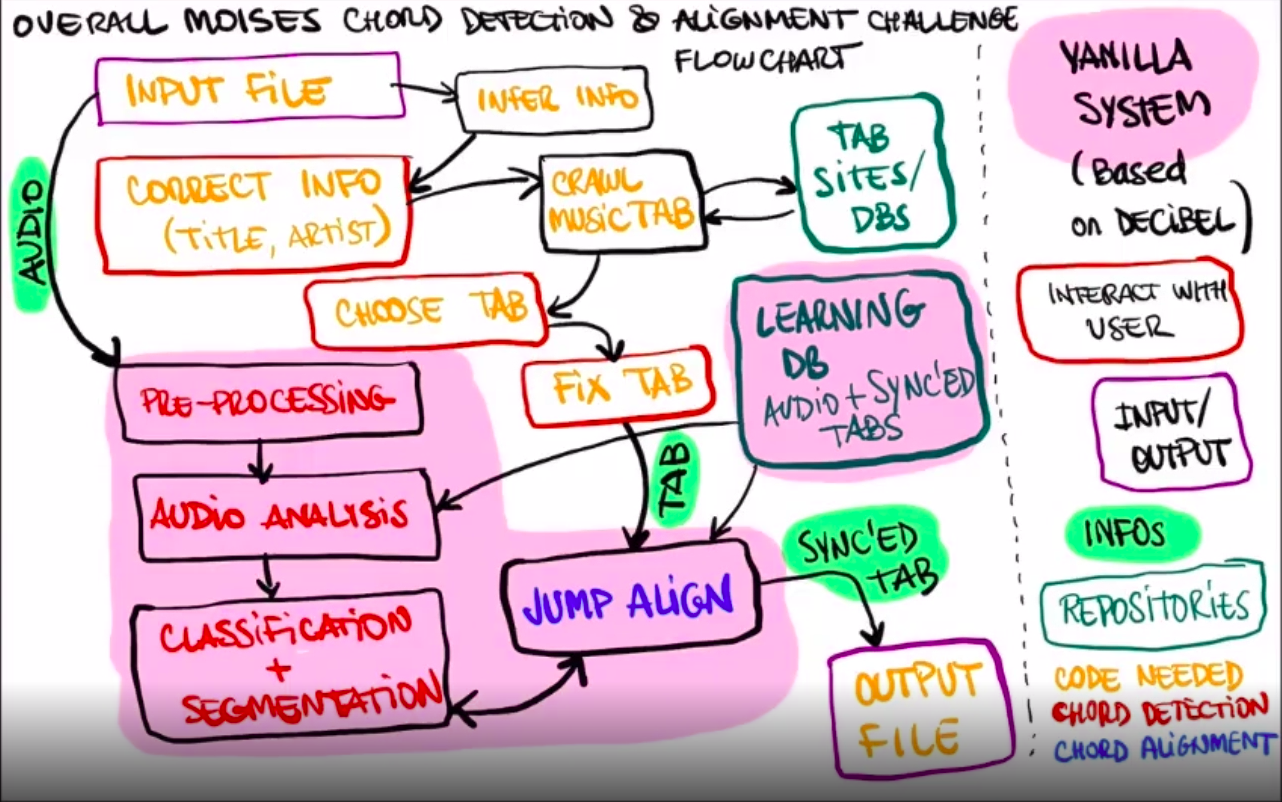 OVERALL MOISES CHORD DETECTION & ALIGNMENT CHALLENGE
FLOWCHART
INPUT FILE
INFER INFO
CORRECT INFO
(TITLE, ARTIST)
CRAWL
MUSIC TAB
TAB
SITES/
DBS
AUDIO
CHOOSE TAB
FIX TAB
LEARNING
DB
AUDIO + SYNC'ED
TABS
PRE-PROCESSING
AUDIO ANALYSIS
TAB
CLASSIFICATION
+
SEGMENTATION
JUMP ALIGN
SYNC'ED
TAB
OUTPUT
FILE
VANILLA
SYSTEM
(Based
on DECIBEL)
INTERACT WITH
USER
INPUT/
OUTPUT
INFOS
REPOSITORIES
CODE NEEDED
CHORD DETECTION
CHORD ALIGNMENT